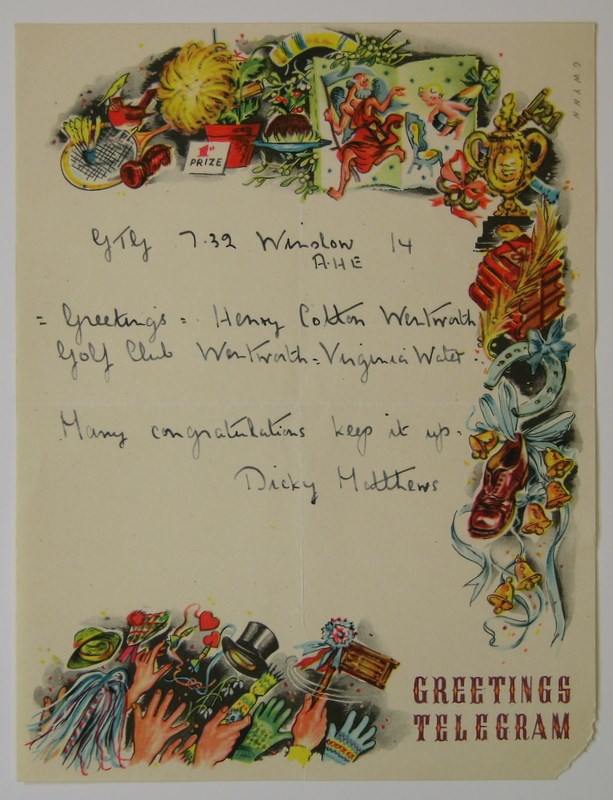 GWYNN
1st PRIZE
GTG 7.32 Winslow 14
A.H.E
= Greetings = Henry Cotton Wentworth
Golf Club Wentworth = Virginia Water.
Many congratulations keep it up.
Dicky Matthews
GREETINGS
TELEGRAM